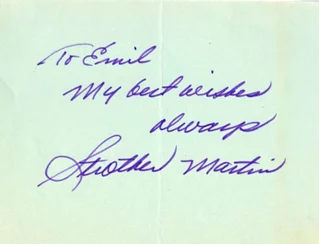 To Emil
My best wishes
always
Strother Martin